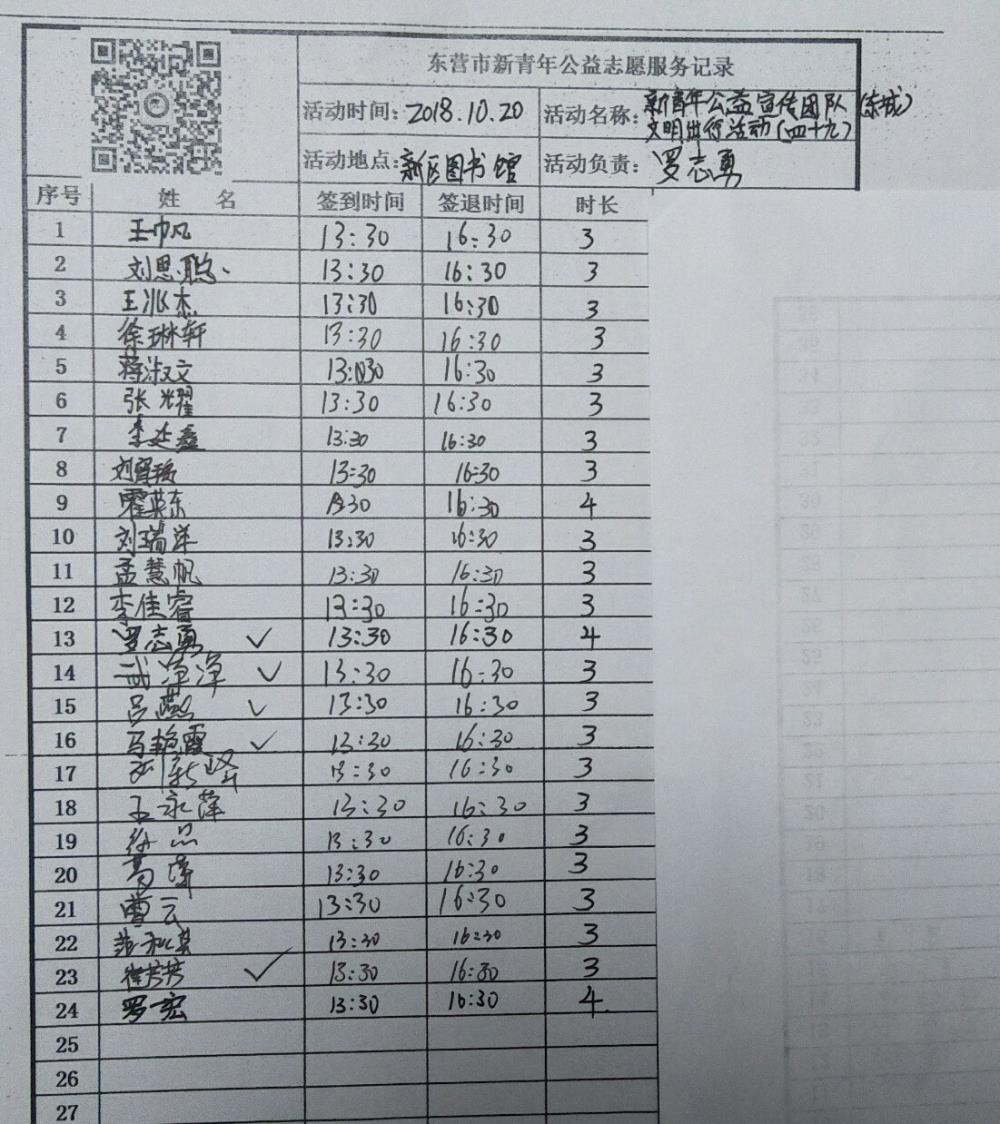 东营市新青年公益志愿服务记录
活动时间：2018.10.20 活动名称：新青年公益宣传团队（东城）
文明出行活动（四十九）
活动地点：新区图书馆 活动负责：罗志勇
序号 姓 名 签到时间 签退时间 时长
1 王巾凡 13:30 16:30 3
2 刘思聪 13:30 16:30 3
3 王兆杰 13:30 16:30 3
4 徐琳轩 13:30 16:30 3
5 蒋淑文 13:30 16:30 3
6 张耀 13:30 16:30 3
7 李延鑫 13:30 16:30 3
8 13:30 16:30 3
9 霍英东 13:30 16:30 4
10 刘瑞洋 13:30 16:30 3
11 孟慧帆 13:30 16:30 3
12 李佳睿 13:30 16:30 3
13 罗志勇 ✓ 13:30 16:30 4
14 武淨淨 ✓ 13:30 16:30 3
15 吕燕 ✓ 13:30 16:30 3
16 马艳霞 ✓ 13:30 16:30 3
17 13:30 16:30 3
18 王永萍 13:30 16:30 3
19 13:30 16:30 3
20 13:30 16:30 3
21 曹云 13:30 16:30 3
22 13:30 16:30 3
23 崔芳芳 ✓ 13:30 16:30 3
24 罗一宏 13:30 16:30 4
25
26
27